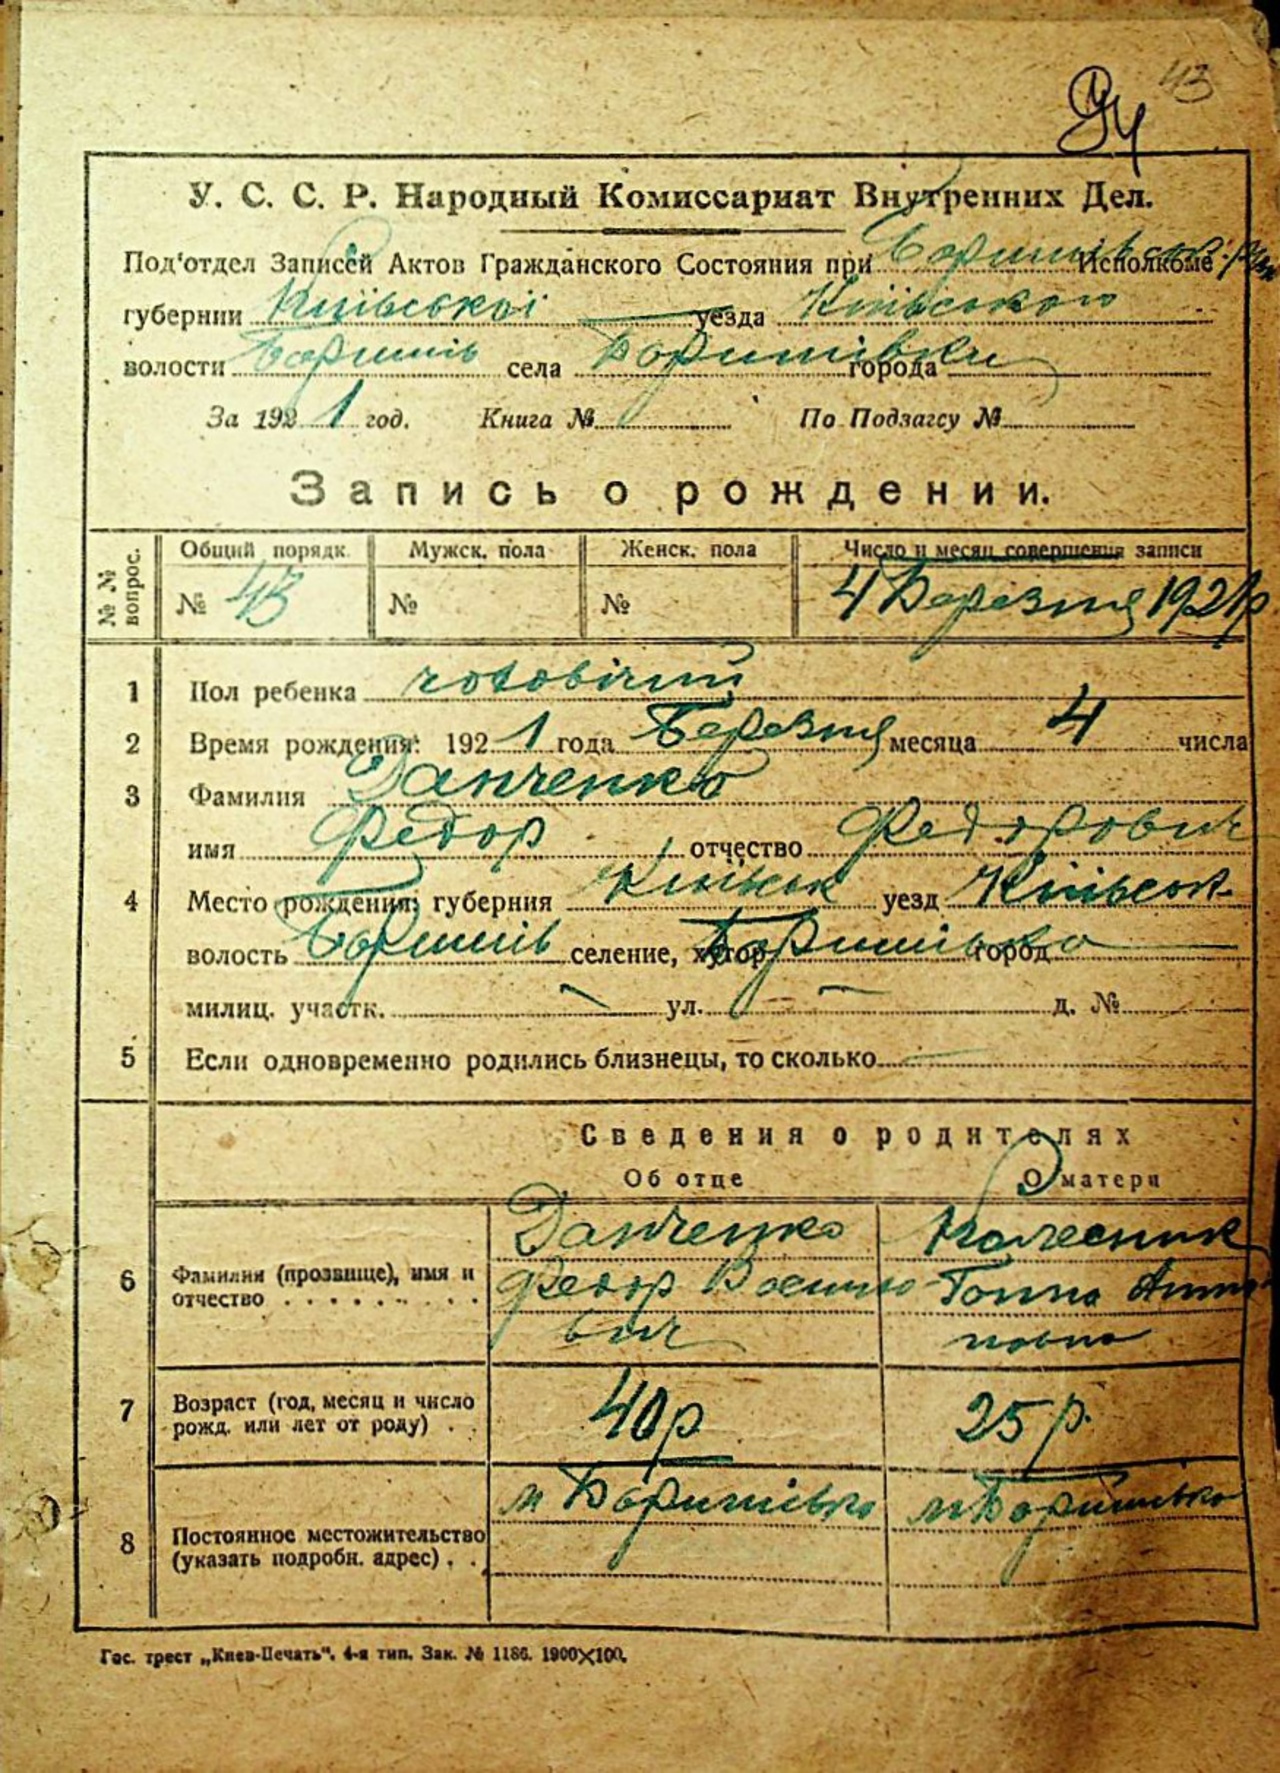 43
94
У. С. С. Р. Народный Комиссариат Внутренних Дел.
Под'отдел Записей Актов Гражданского Состояния при Исполкоме
губернии Київської уезда Київського
волости села города
За 1921 год. Книга № По Подзагсу №
Запись о рождении.
№ № вопрос. Общий порядк. Мужск. пола Женск. пола Число и месяц совершения записи
№ 43 № № 4 Березня 1921 р
1 Пол ребенка чоловічий
2 Время рождения: 1921 года Березня месяца 4 числа
3 Фамилия Данченко
имя Федор отчество Федорович
4 Место рождения: губерния уезд Київськ
волость селение, хутор город
милиц. участк. ул. д. №
5 Если одновременно родились близнецы, то сколько
Сведения о родителях
Об отце О матери
6 Фамилия (прозвище), имя и отчество Данченко Федор
7 Возраст (год, месяц и число рожд. или лет от роду) 40 р 25 р.
8 Постоянное местожительство (указать подробн. адрес) м м
Гос. трест „Киев-Печать". 4-я тип. Зак. № 1186. 1900×100.